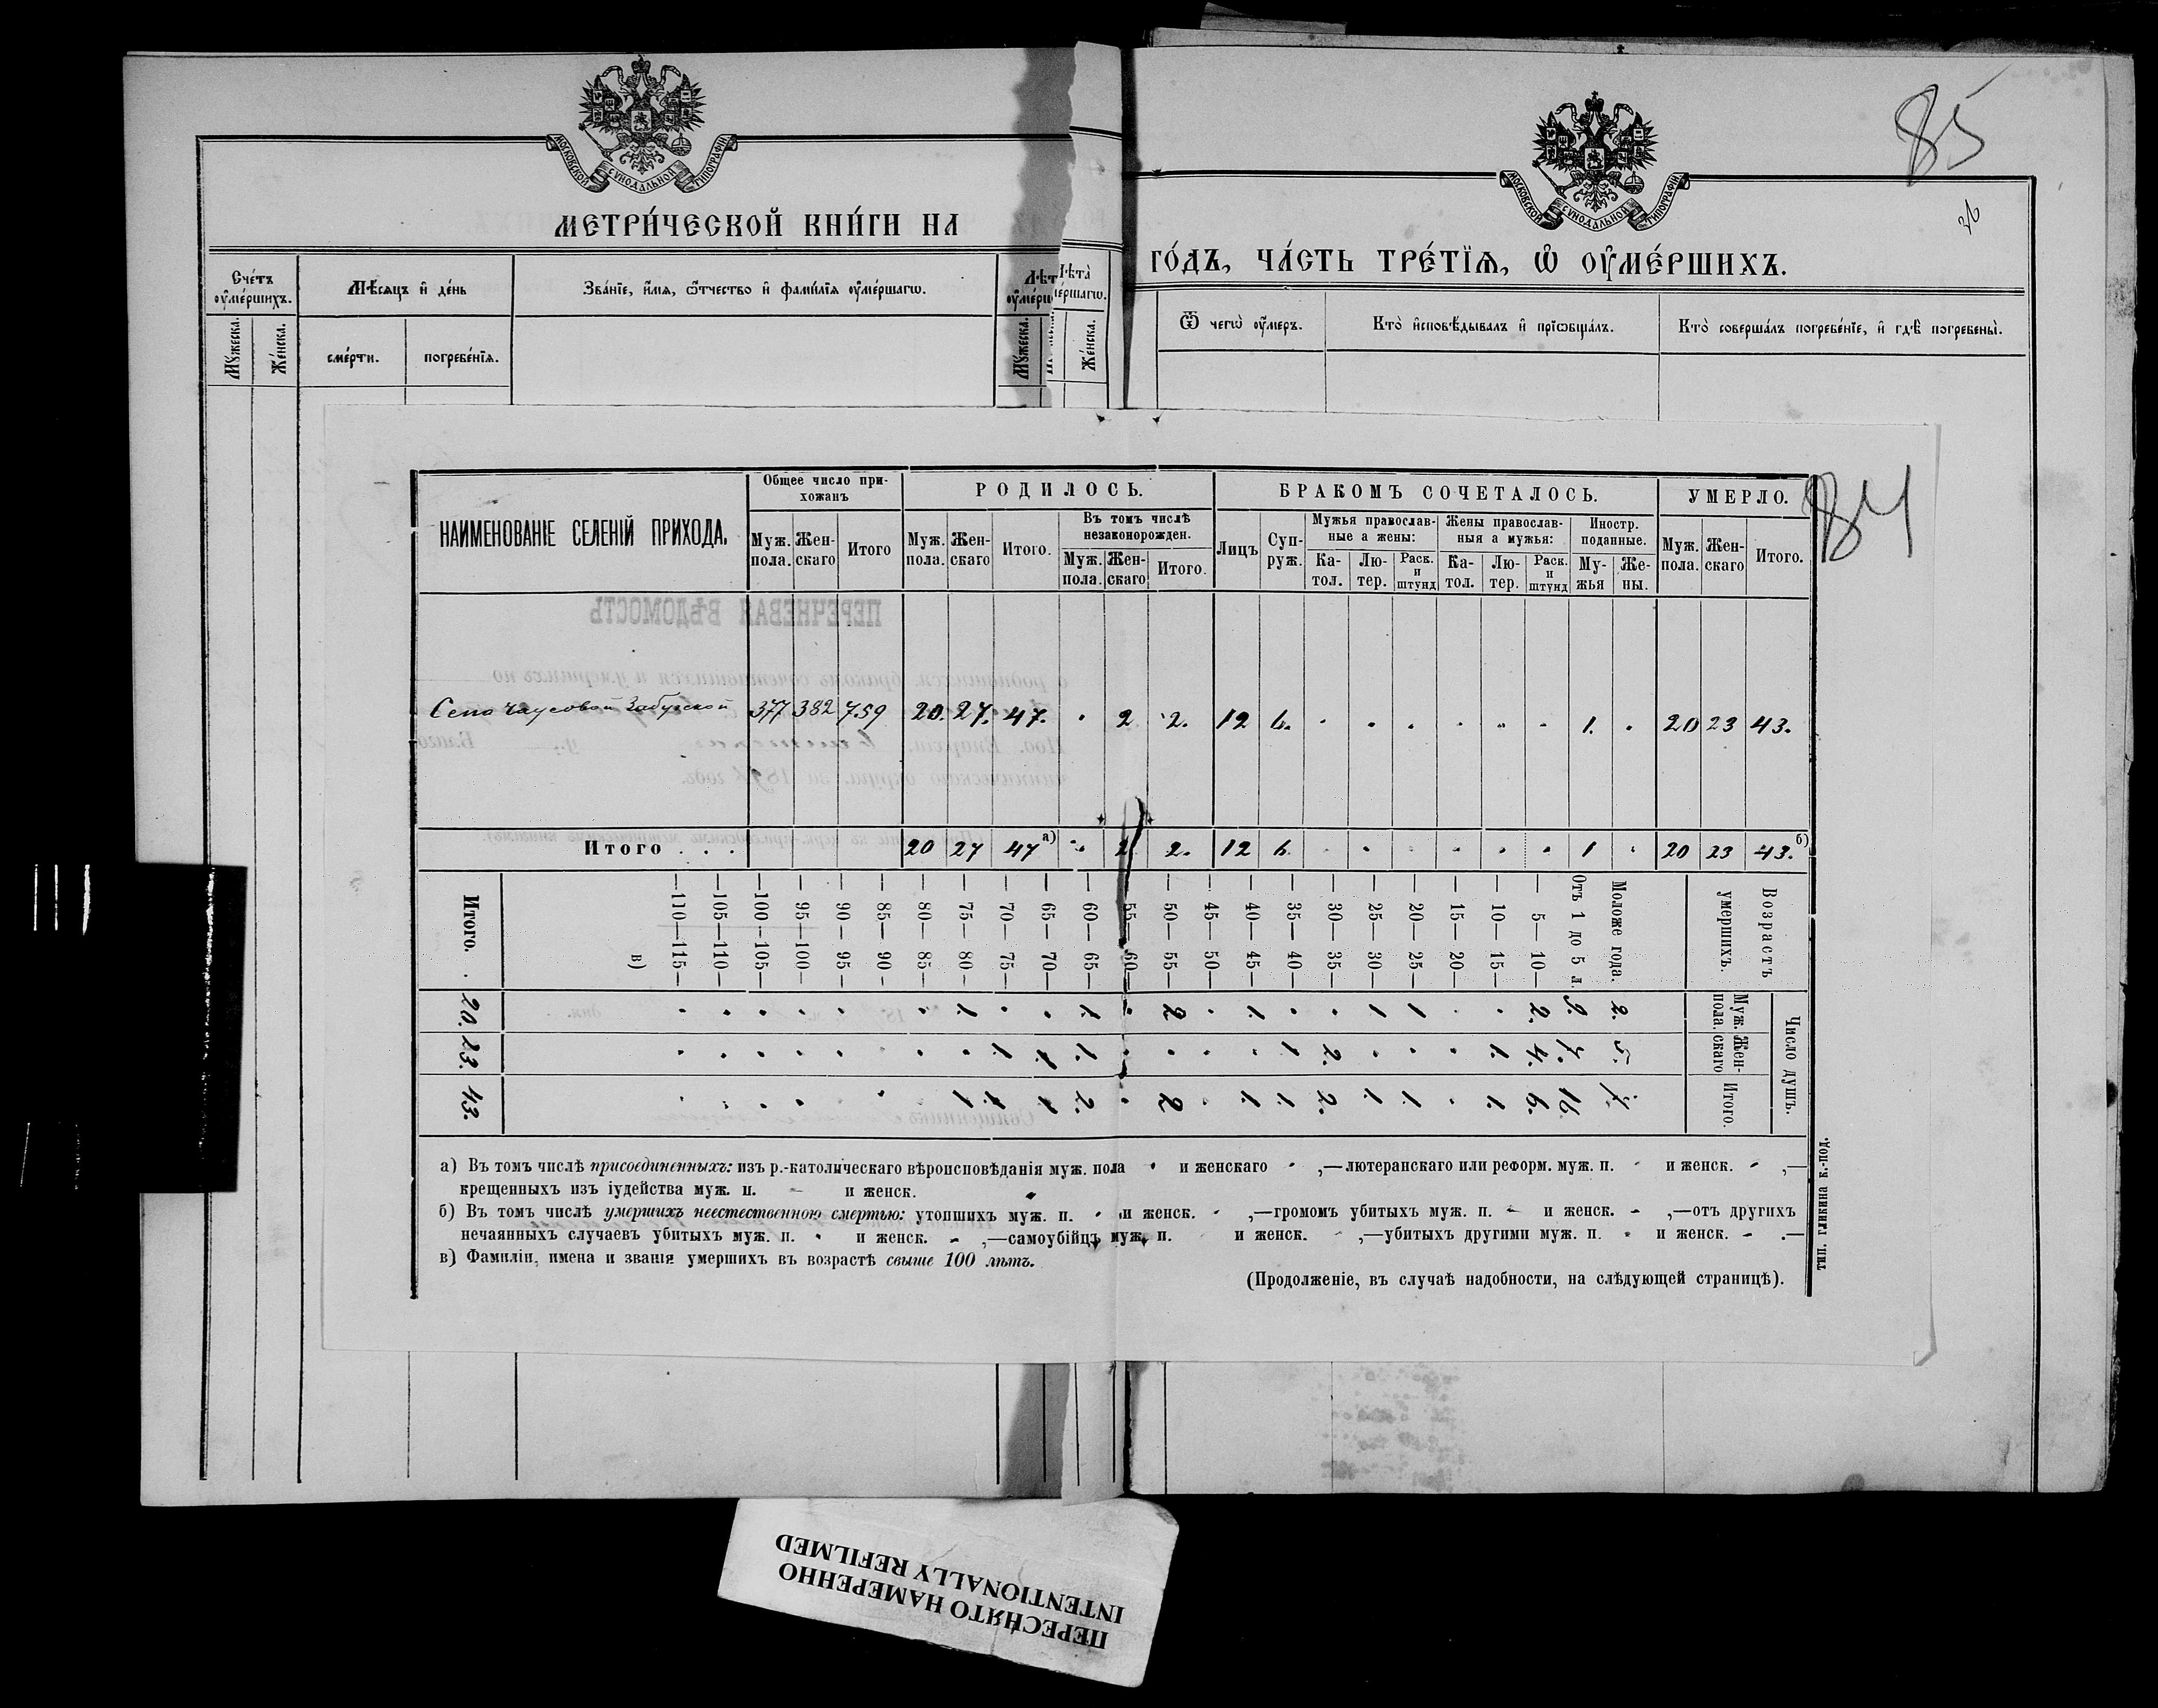 МОСКОВСКОЙ СѴНОДАЛЬНОЙ ТИПОГРАФІИ
МЕТРИ́ЧЕСКОЙ КНИ́ГИ НА
Сче́тъ оу҆ме́ршихъ.
Мѣ́сяцъ и҆ де́нь
Зва́ніе, и҆́мя, ѻ҆́тчество и҆ фами́лїя оу҆ме́ршагѡ.
Лѣта̀ оу҆ме́ршагѡ.
Мꙋ́жеска.
Же́нска.
сме́рти.
погребе́нїя.
Мꙋ́жеска.
Же́нска.
85
МОСКОВСКОЙ СѴНОДАЛЬНОЙ ТИПОГРАФІИ
ГО́ДЪ, ЧА́СТЬ ТРЕ́ТЇѦ, Ѽ ОУ҆МЕ́РШИХЪ.
Ѿ чегѡ̀ оу҆́меръ.
Кто̀ и҆сповѣ́дывалъ и҆ прїѡбща́лъ.
Кто̀ соверша́лъ погребе́нїе, и҆ гдѣ̀ погребены̀.
84
НАИМЕНОВАНІЕ СЕЛЕНІЙ ПРИХОДА.
Общее число прихожанъ
РОДИЛОСЬ.
БРАКОМЪ СОЧЕТАЛОСЬ.
УМЕРЛО.
Муж. пола. Женскаго Итого
Муж. пола. Женскаго Итого.
Въ томъ числѣ незаконорожден.
Муж. пола. Женскаго Итого.
Лицъ Супруж.
Мужья православные а жены:
Катол. Лютер. Раск. и штунд
Жены православныя а мужья:
Катол. Лютер. Раск. и штунд
Иностр. поданные.
Мужья Жены.
Муж. пола. Женскаго Итого.
Село Чаусовой Забугской 377 382 759 20. 27. 47. 2 2. 12 6. 1. 20 23 43.
Итого . . . 20 27 47 а) 2 2. 12 6. 1 20 23 43. б)
Возрастъ умершихъ.
Число душъ.
Муж. пола. Женскаго Итого.
Моложе года. 2. 5. 7.
Отъ 1 до 5 л. 9. 7. 16.
— 5— 10— 2. 4. 6.
— 10— 15— 1. 1.
— 15— 20—
— 20— 25— 1 1.
— 25— 30— 1 1.
— 30— 35— 2. 2.
— 35— 40— 1 1.
— 40— 45— 1. 1.
— 45— 50—
— 50— 55— 2 2
— 55— 60—
— 60— 65— 1. 1. 2.
— 65— 70— 1. 1
— 70— 75— 1. 1.
— 75— 80— 1. 1
— 80— 85—
— 85— 90—
— 90— 95—
— 95—100—
—100—105—
—105—110—
—110—115—
в)
Итого. . 20. 23. 43.
а) Въ томъ числѣ присоединенныхъ: изъ р.-католическаго вѣроисповѣданія муж. пола и женскаго ,—лютеранскаго или реформ. муж. п. и женск. ,—
крещенныхъ изъ іудейства муж. п. и женск.
б) Въ томъ числѣ умершихъ неестественною смертью: утопшихъ муж. п. и женск. ,—громомъ убитыхъ муж. п. и женск. ,—отъ другихъ
нечаянныхъ случаевъ убитыхъ муж. п. и женск. ,—самоубійцъ муж. п. и женск. ,—убитыхъ другими муж. п. и женск. .—
в) Фамиліи, имена и званія умершихъ въ возрастѣ свыше 100 лѣтъ.
(Продолженіе, въ случаѣ надобности, на слѣдующей страницѣ).
тип. гликина к.-под.
ПЕРЕСНЯТО НАМЕРЕННО
INTENTIONALLY REFILMED